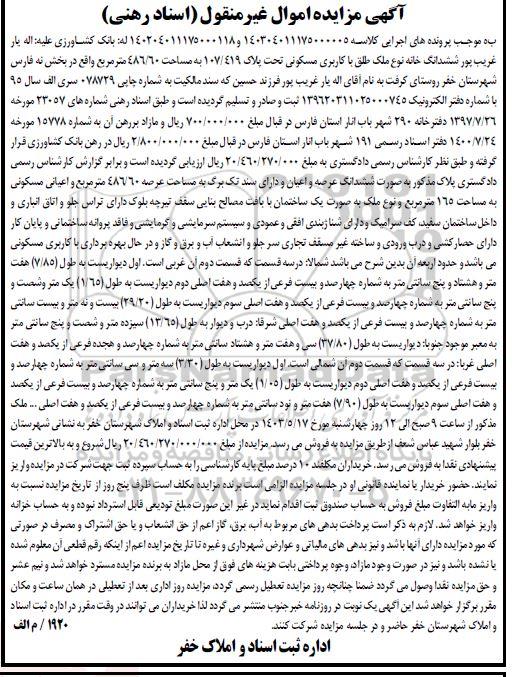 آگهی مزایده اموال غیرمنقول (اسناد رهنی)
به موجب پرونده های اجرایی کلاسه ۱۴۰۳۰۴۰۱۱۱۷۵۰۰۰۰۰۵ و ۱۴۰۲۰۴۰۱۱۱۷۵۰۰۰۱۱۸ له: بانک کشاورزی علیه: اله یار
غریب پور ششدانگ خانه نوع ملک طلق با کاربری مسکونی تحت پلاک ۱۰۷/۴۱۹ به مساحت ۴۸۶/۶۰ مترمربع واقع در بخش نه فارس
شهرستان خفر روستای کرفت به نام آقای اله یار غریب پور فرزند حسین که سند مالکیت به شماره چاپی ۰۷۸۷۲۹ سری الف سال ۹۵
با شماره دفتر الکترونیک ۱۳۹۶۲۰۳۱۱۰۲۵۰۰۰۷۴۵ ثبت و صادر و تسلیم گردیده است و طبق اسناد رهنی شماره های ۲۳۰۵۷ مورخه
۱۳۹۷/۷/۲۶ دفترخانه ۲۹۰ شهر باب انار استان فارس در قبال مبلغ ۷۰۰/۰۰۰/۰۰۰ ریال و مازاد بررهن آن به شماره ۱۵۷۷۸ مورخه
۱۴۰۰/۷/۲۴ دفتر اسناد رسمی ۱۹۱ شهر باب انار استان فارس در قبال مبلغ ۲/۸۰۰/۰۰۰/۰۰۰ ریال در رهن بانک کشاورزی قرار
گرفته و طبق نظر کارشناس رسمی دادگستری به مبلغ ۲۰/۴۶۰/۲۷۰/۰۰۰ ریال ارزیابی گردیده است و برابر گزارش کارشناس رسمی
دادگستری پلاک مذکور به صورت ششدانگ عرصه و اعیان و دارای سند تک برگ به مساحت عرصه ۴۸۶/۶۰ مترمربع و اعیانی مسکونی
به مساحت ۱۶۵ مترمربع و نوع ملک به صورت یک ساختمان با بافت مصالح بنایی سقف تیرچه بلوک دارای تراس جلو و اتاق انباری و
داخل ساختمان سفید، کف سرامیک و دارای شناژبندی افقی و عمودی و سیستم سرمایشی و گرمایشی و فاقد پروانه ساختمانی و پایان کار
دارای حصارکشی و درب ورودی و ساخته غیر مسقف تجاری سر جلو و انشعاب آب و برق و گاز و در حال بهره برداری با کاربری مسکونی
می باشد و حدود اربعه آن بدین شرح می باشد شمالا: درسه قسمت که قسمت دوم آن غربی است. اول دیواریست به طول (۷/۸۵) هفت
متر و هشتاد و پنج سانتی متر به شماره چهارصد و بیست فرعی از یکصد و هفت اصلی دوم دیواریست به طول (۱/۶۵) یک متر وشصت و
پنج سانتی متر به شماره چهارصد و بیست فرعی از یکصد و هفت اصلی سوم دیواریست به طول (۲۹/۲۰) بیست و نه متر و بیست سانتی
متر به شماره چهارصد و بیست فرعی از یکصد و هفت اصلی شرقا: درب و دیوار به طول (۱۳/۶۵) سیزده متر و شصت و پنج سانتی متر
به معبر موجود جنوبا: دیواریست به طول (۳۷/۸۰) سی و هفت متر و هشتاد سانتی متر به شماره چهارصد و هجده فرعی از یکصد و هفت
اصلی غربا: در سه قسمت که قسمت دوم آن شمالی است. اول دیواریست به طول (۳/۳۰) سه متر و سی سانتی متر به شماره چهارصد و
بیست فرعی از یکصد و هفت اصلی دوم دیواریست به طول (۱/۰۵) یک متر و پنج سانتی متر به شماره چهارصد و بیست فرعی از یکصد
و هفت اصلی سوم دیواریست به طول (۷/۹۰) هفت متر و نود سانتی متر به شماره چهارصد و بیست فرعی از یکصد و هفت اصلی ... ملک
مذکور از ساعت ۹ صبح الی ۱۲ روز چهارشنبه مورخ ۱۴۰۳/۵/۱۷ در محل اداره ثبت اسناد و املاک شهرستان خفر به نشانی شهرستان
خفر بلوار شهید عباس صعف ازطریق مزایده به فروش می رسد. مزایده از مبلغ ۲۰/۴۶۰/۲۷۰/۰۰۰/۰۰۰ ریال شروع و به بالاترین قیمت
پیشنهادی نقدا به فروش می رسد. خریداران مکلفند ۱۰ درصد مبلغ پایه کارشناسی را به حساب سپرده ثبت جهت شرکت در مزایده واریز
نمایند. حضور خریدار یا نماینده قانونی او در جلسه مزایده الزامی است برنده مزایده مکلف است ظرف پنج روز از تاریخ مزایده نسبت به
واریز مابه التفاوت مبلغ فروش به حساب صندوق ثبت اقدام نماید در غیر این صورت مبلغ تودیعی قابل استرداد نبوده و به حساب خزانه
واریز خواهد شد. لازم به ذکر است پرداخت بدهی های مربوط به آب، برق، گاز اعم از حق انشعاب و یا حق اشتراک و مصرف در صورتی
که مورد مزایده دارای آنها باشد و نیز بدهی های مالیاتی و عوارض شهرداری و غیره تا تاریخ مزایده اعم از اینکه رقم قطعی آن معلوم شده
یا نشده باشد و نیز در صورت وجود مازاد، وجوه پرداختی بابت هزینه های فوق از محل مازاد به برنده مزایده مسترد خواهد شد و نیم عشر
و حق مزایده نقدا وصول می گردد ضمنا چنانچه روز مزایده تعطیل رسمی گردد، مزایده روز اداری بعد از تعطیلی در همان ساعت و مکان
مقرر برگزار خواهد شد این آگهی یک نوبت در روزنامه خبر جنوب منتشر می گردد لذا خریداران می توانند در وقت مقرر در اداره ثبت اسناد
و املاک شهرستان خفر حاضر و در جلسه مزایده شرکت کنند. ۱۹۲۰ / م الف
اداره ثبت اسناد و املاک خفر